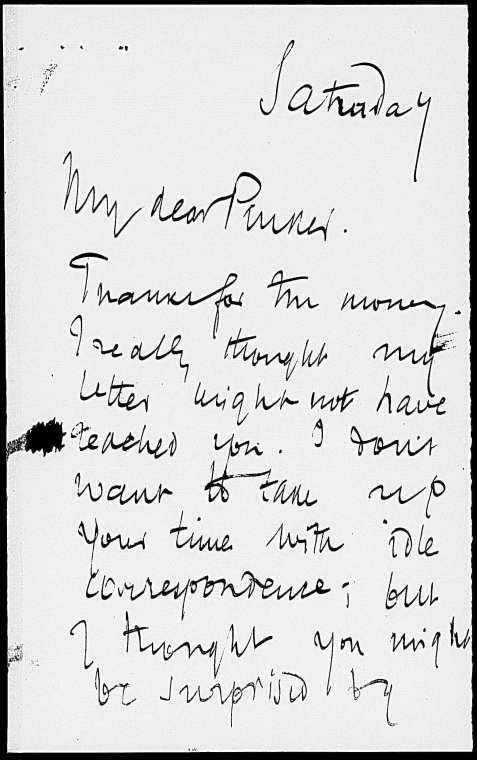 Saturday
My dear Pinker.
Thanks for the money.
I really thought my
letter might not have
reached you. I don't
want to take up
your time with idle
correspondence; but
I thought you might
be surprised by